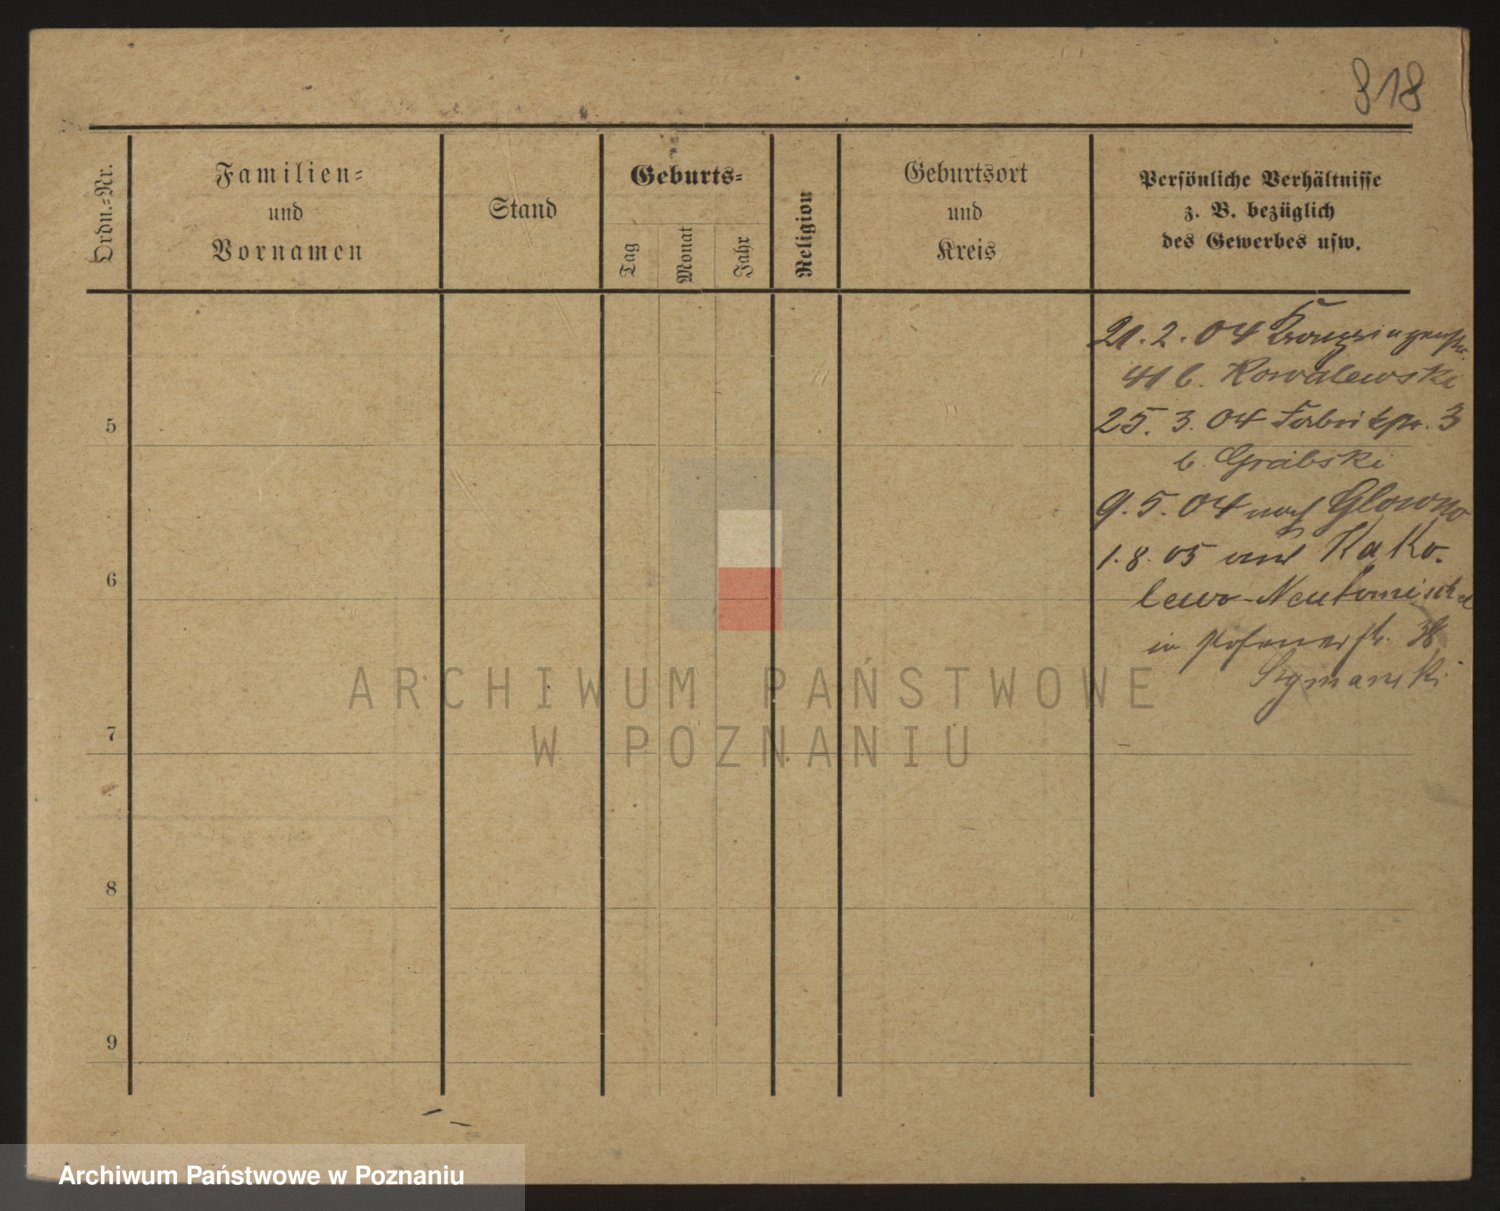 818
Ordn.-Nr.
Familien-
und
Vornamen
Stand
Geburts-
Tag
Monat
Jahr
Religion
Geburtsort
und
Kreis
Persönliche Verhältnisse
z. B. bezüglich
des Gewerbes usw.
21.2.04
41 b. Kowalewski
25.3.04 Fabrikstr. 3
b. Grabski
9.5.04 nach Glowno
1.8.05 aus Kako-
lewo-Neutomischel
in Posenerstr. 38
Szymanski
5
6
7
8
9
ARCHIWUM PAŃSTWOWE
W POZNANIU
Archiwum Państwowe w Poznaniu